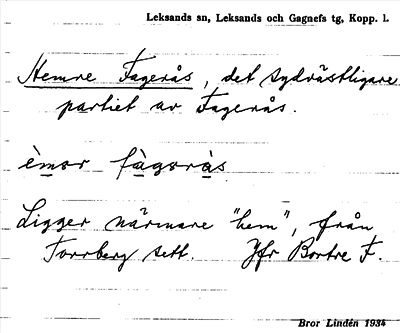 Leksands sn, Leksands och Gagnefs tg, Kopp. l.
Hemre Fagerås, det sydvästligare
partiet av Fagerås.
èmər fàgərås
Ligger närmare "hem", från
Torrberg sett. Jfr Bortre F.
Bror Lindén 1934